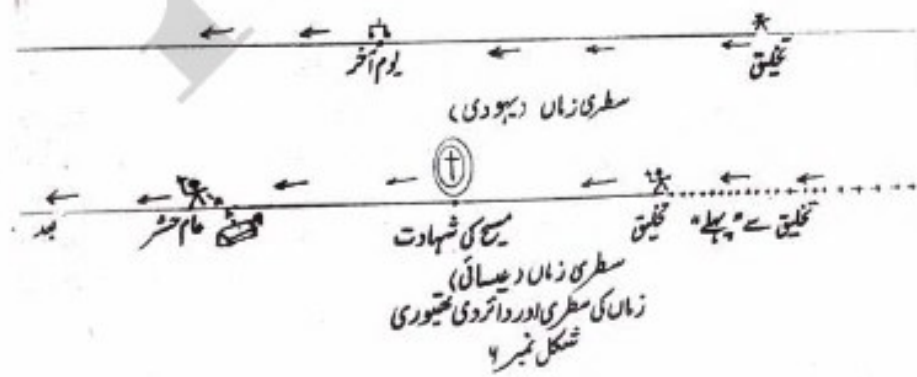 تخلیق یوم آخر
سطری زماں (یہودی)
تخلیق سے "پہلے" تخلیق مسیح کی شہادت عام حشر بعد
سطری زماں (عیسائی)
زماں کی سطری اور دائروی تھیوری
شکل نمبر ۶